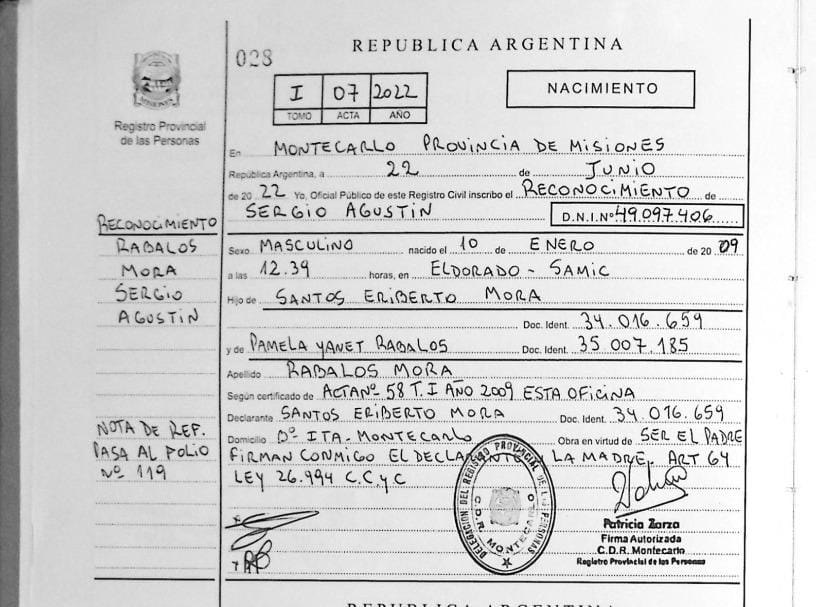 028
REPUBLICA ARGENTINA
I 07 2022
TOMO ACTA AÑO
NACIMIENTO
MISIONES
Registro Provincial
de las Personas
En MONTECARLO PROVINCIA DE MISIONES
República Argentina, a 22 de JUNIO
de 20 22 Yo, Oficial Público de este Registro Civil inscribo el RECONOCIMIENTO de
SERGIO AGUSTIN D.N.I.Nº 49.097.406
RECONOCIMIENTO
RABALOS
MORA
SERGIO
AGUSTIN
Sexo MASCULINO nacido el 10 de ENERO de 20 09
a las 12.39 horas, en ELDORADO - SAMIC
Hijo de SANTOS ERIBERTO MORA
Doc. Ident. 34.016.659
y de PAMELA YANET RABALOS Doc. Ident. 35.007.185
Apellido RABALOS MORA
Según certificado de ACTA Nº 58 T. I AÑO 2009 ESTA OFICINA
Declarante SANTOS ERIBERTO MORA Doc. Ident. 34.016.659
Domicilio Bº ITA - MONTECARLO Obra en virtud de SER EL PADRE
FIRMAN CONMIGO EL LA MADRE. ART 64
LEY 26.994 C.C y C
NOTA DE REF.
PASA AL FOLIO
Nº 119
DELEGACION DEL REGISTRO PROVINCIAL DE LAS PERSONAS
C.D.R. MONTECARLO
Patricia Zarza
Firma Autorizada
C.D.R. Montecarlo
Registro Provincial de las Personas
REPUBLICA ARGENTINA